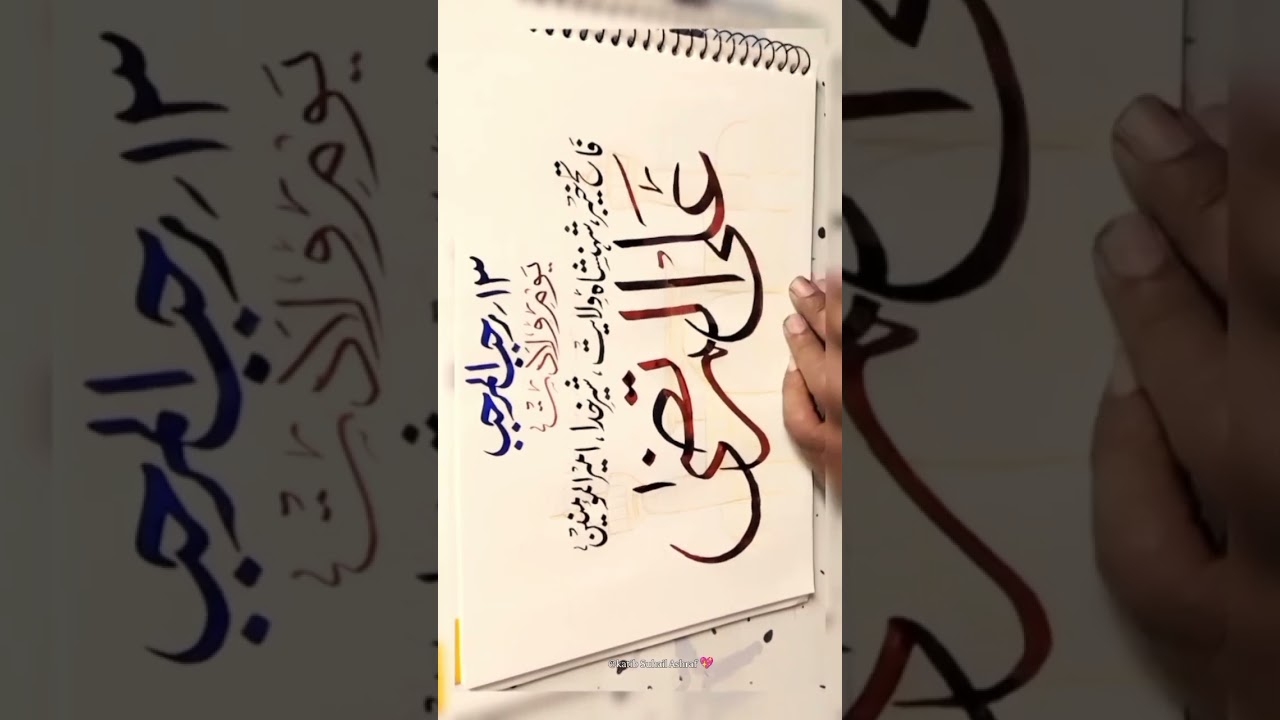 ۱۳؍رجب المرجب
یَومِ وِلَادَت
فَاتح خیبر، شہنشاہِ وِلایت، شیرِ خدا، امیرالمومنین
عَلی المرتضیٰ
@Katib Suhail Ashraf 💖